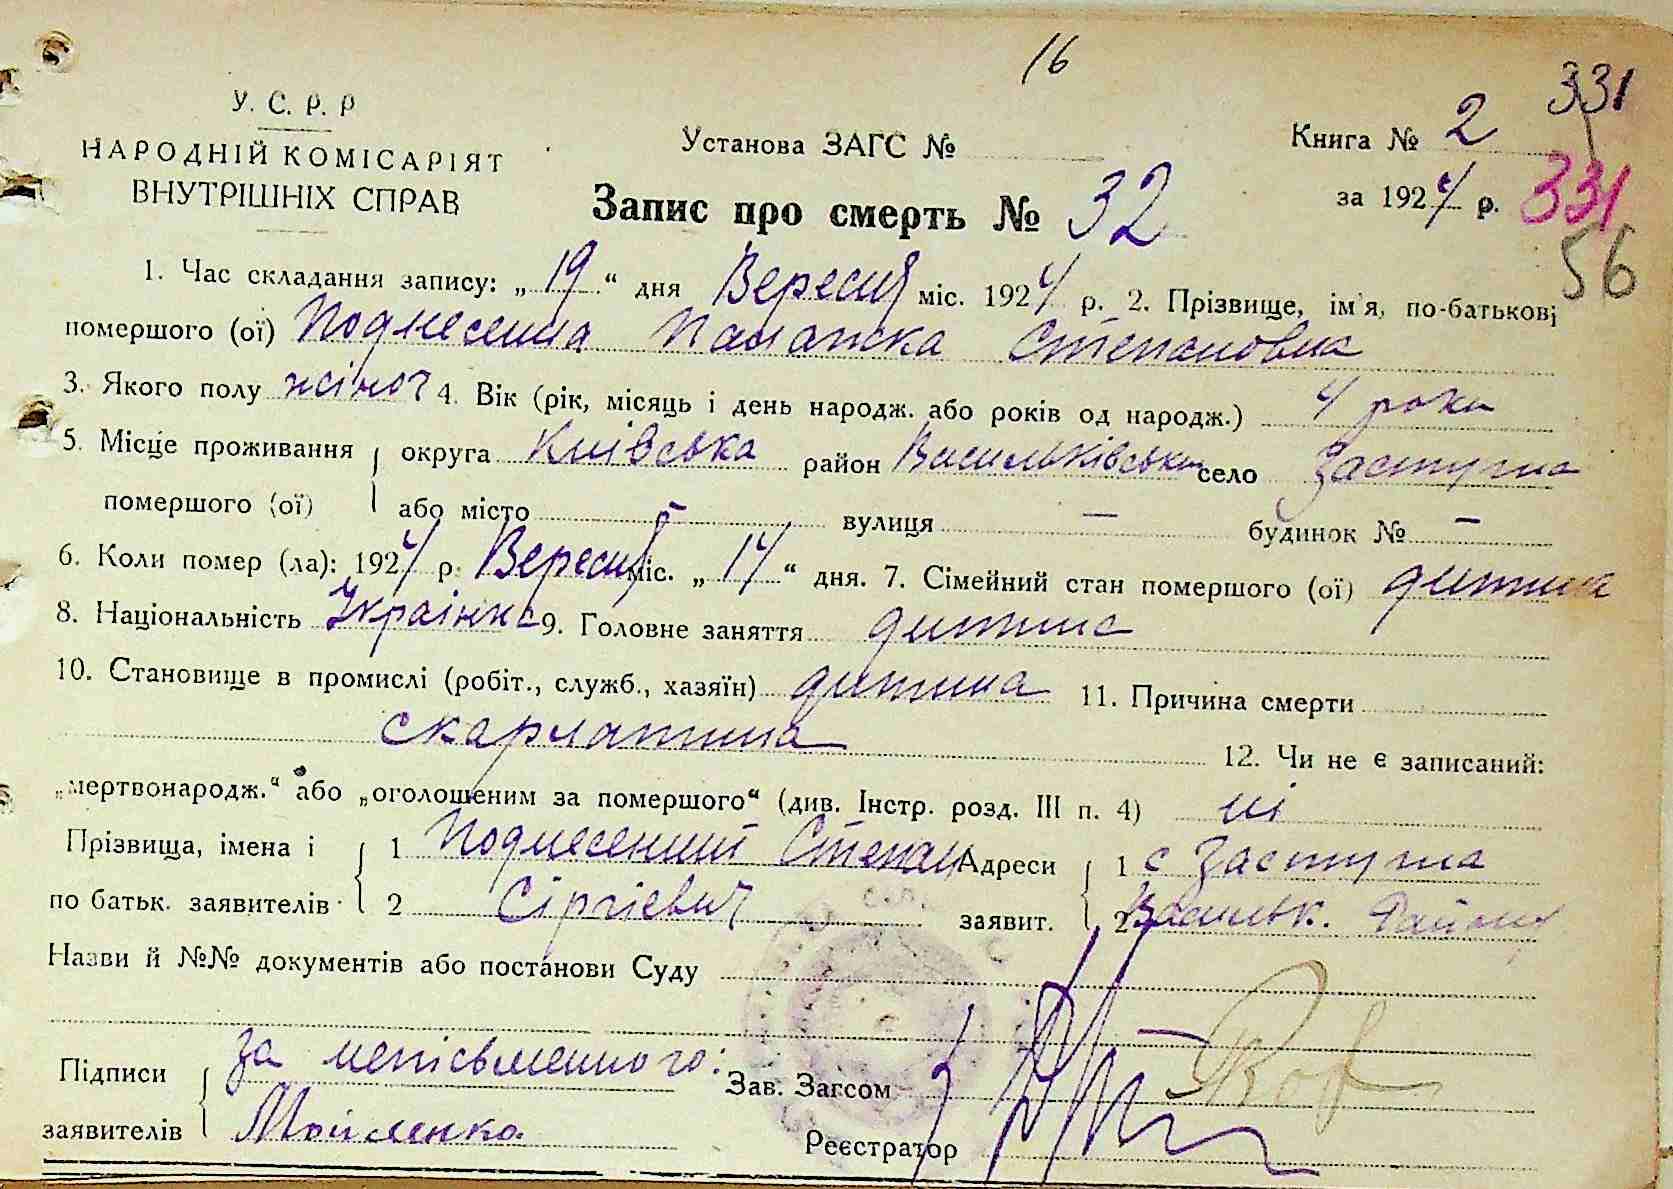 16
331
У. С. Р. Р
НАРОДНІЙ КОМІСАРІЯТ
ВНУТРІШНІХ СПРАВ
Установа ЗАГС №
Книга № 2
за 1924 р. 331
56
Запис про смерть № 32
1. Час складання запису: „19“ дня Вересня міс. 1924 р. 2. Прізвище, ім'я, по-батькові
помершого (ої) Поднесенна Параска Степановна
3. Якого полу жіноч 4. Вік (рік, місяць і день народж. або років од народж.) 4 роки
5. Місце проживання округа Київська район Васильківськи село Застугна
помершого (ої) або місто – вулиця – будинок № –
6. Коли помер (ла): 1924 р. Вересня міс. „14“ дня. 7. Сімейний стан помершого (ої) дитина
8. Національність Українка 9. Головне заняття дитина
10. Становище в промислі (робіт., служб., хазяїн) дитина 11. Причина смерти
скарлатина 12. Чи не є записаний:
„мертвонародж.“ або „оголошеним за помершого“ (див. Інстр. розд. III п. 4) ні
Прізвища, імена і 1 Поднесенний Степан Адреси 1 с Застугна
по батьк. заявителів 2 Сіргієвич заявит. 2 Васильк. Району
Назви й №№ документів або постанови Суду
Підписи за неписьменного: Зав. Загсом
заявителів Мойленко Реєстратор